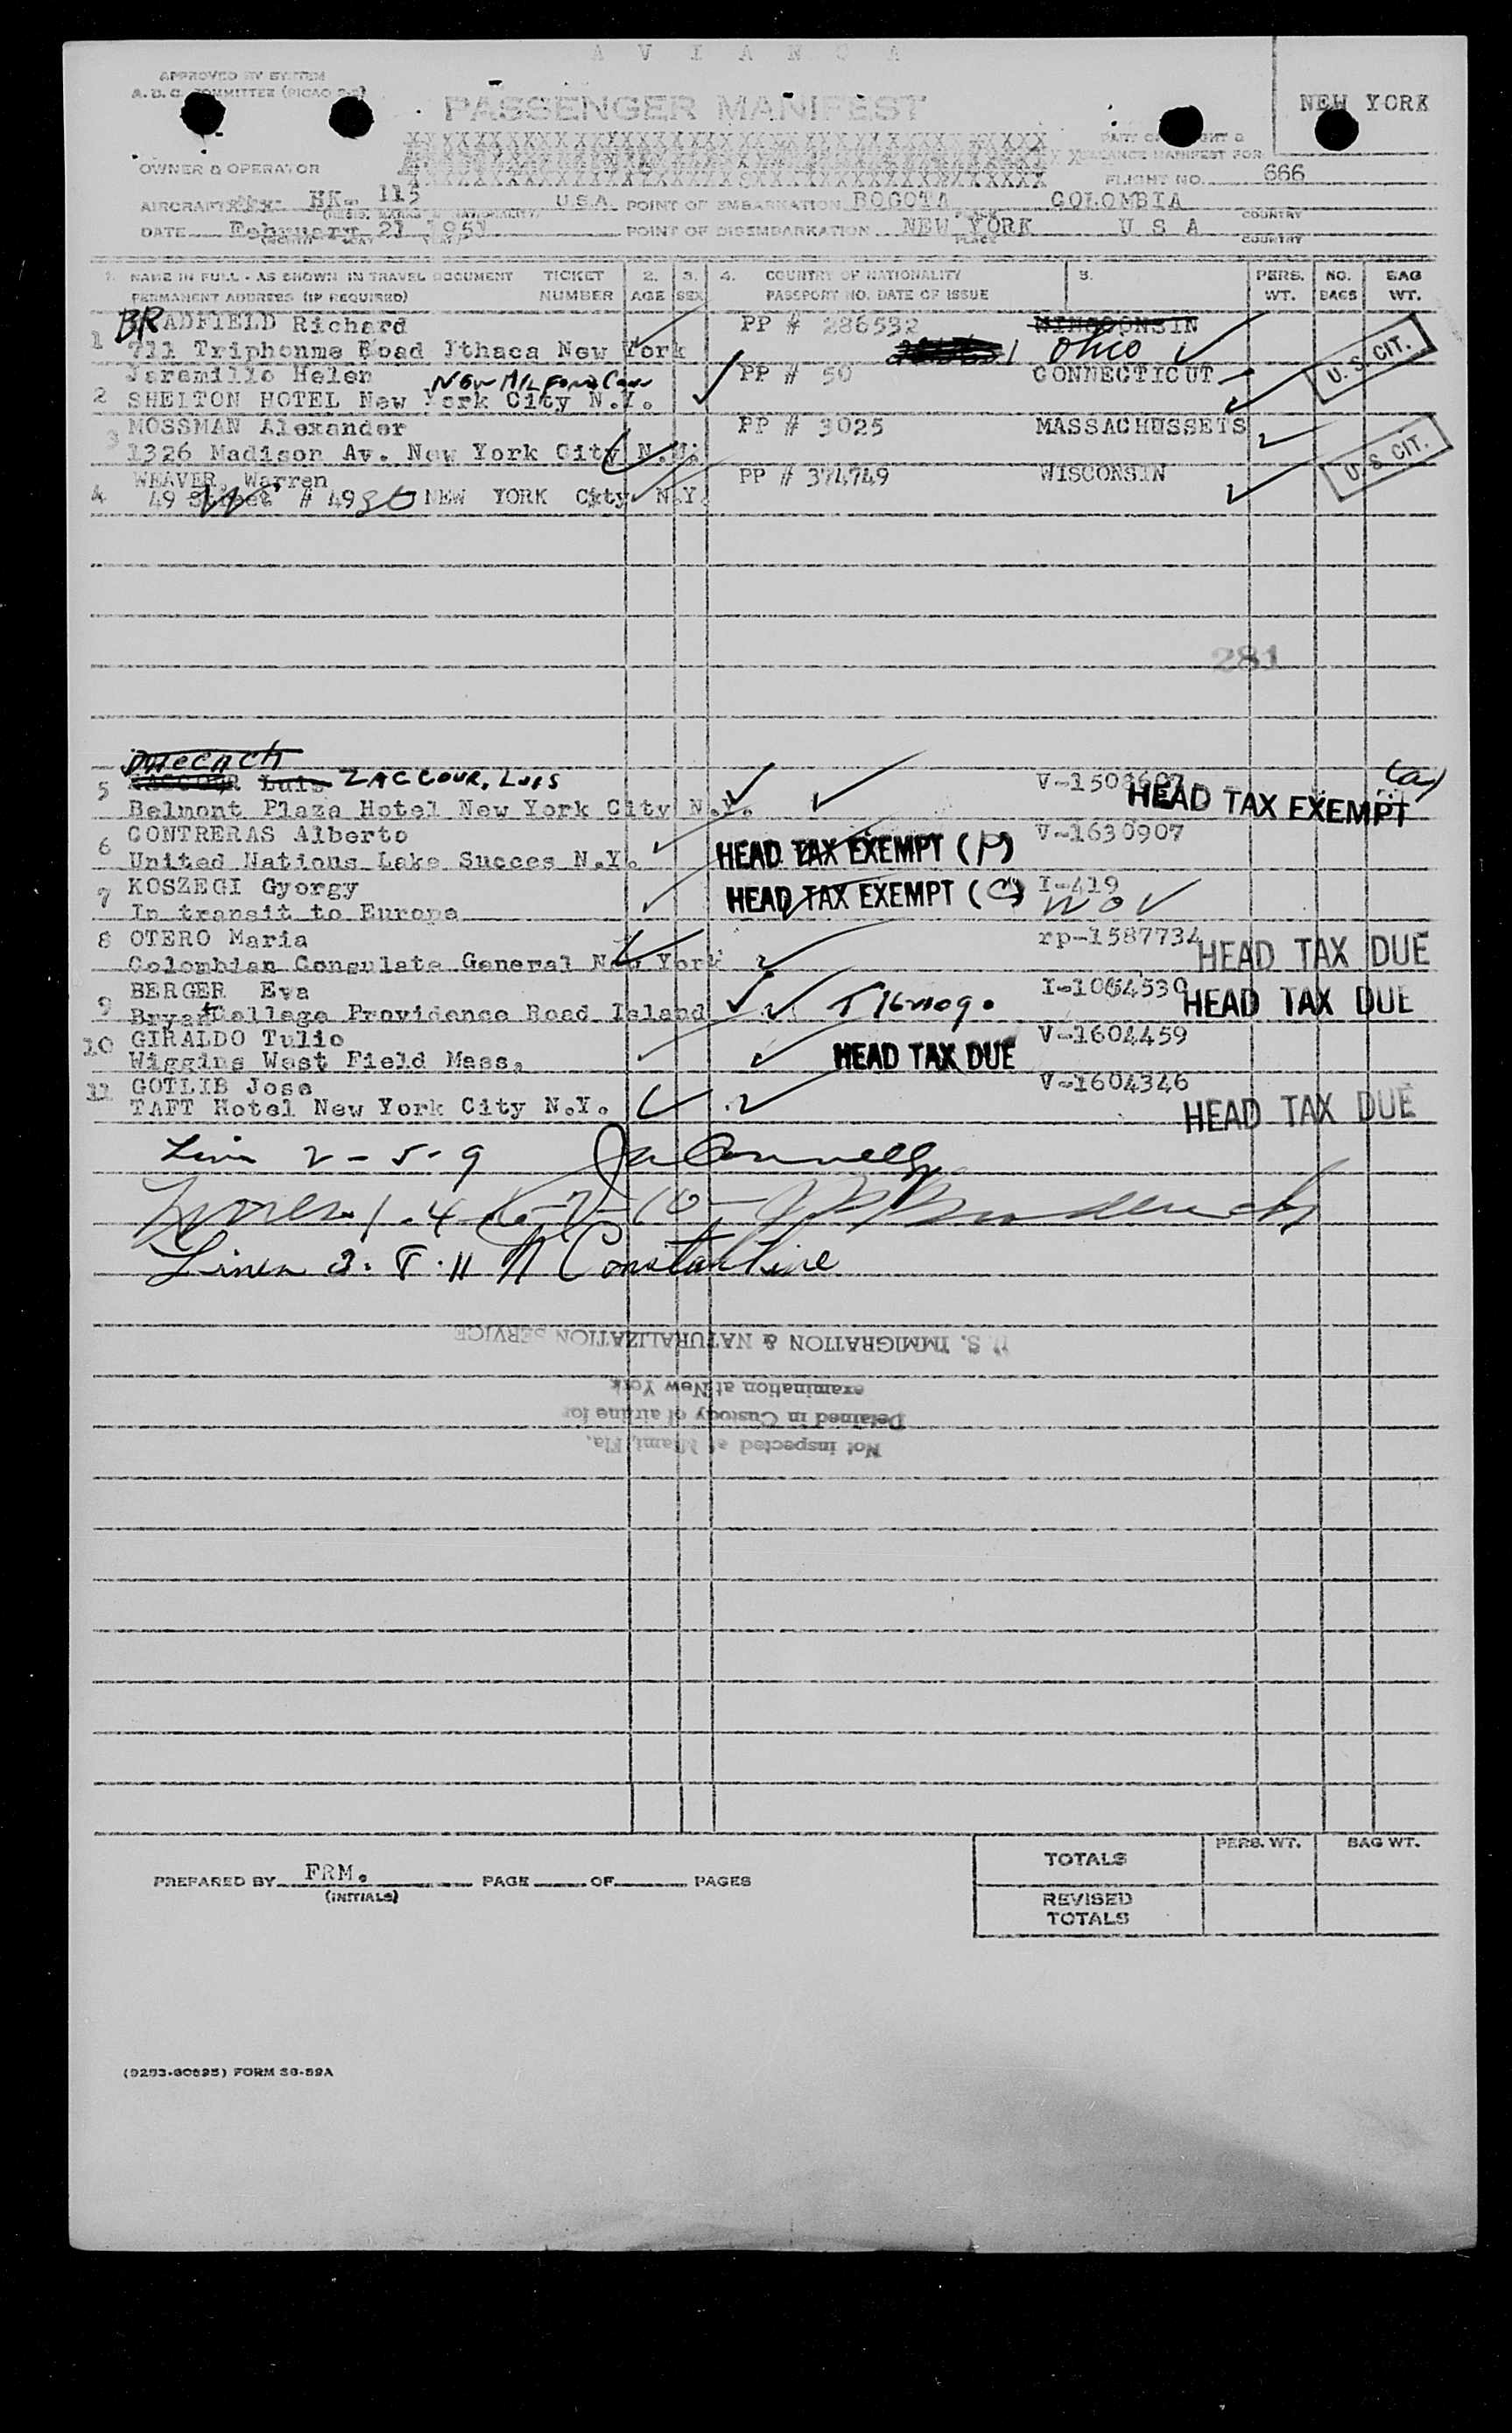 A V I A N C A
APPROVED BY SYSTEM
A.D.C. COMMITTEE (PICAO 2-2)
PASSENGER MANIFEST
NEW YORK
OWNER & OPERATOR
BALANCE MANIFEST FOR
FLIGHT NO. 666
AIRCRAFT HK- 115 U.S.A. POINT OF EMBARKATION BOGOTA COLOMBIA
PLACE COUNTRY
DATE February 21 1951 POINT OF DISEMBARKATION NEW YORK U S A
(MONTH DAY YEAR) PLACE COUNTRY
1. NAME IN FULL - AS SHOWN IN TRAVEL DOCUMENT TICKET 2. 3. 4. COUNTRY OF NATIONALITY 5. PERS. NO. BAG
PERMANENT ADDRESS (IF REQUIRED) NUMBER AGE SEX PASSPORT NO. DATE OF ISSUE WT. BAGS WT.
1 BRADFIELD Richard PP # 286532 WINSCONSIN
711 Triphonme Road Ithaca New York Ohio
Jaramillo Helen New Milford Conn PP # 50 CONNECTICUT U. S. CIT.
2 SHELTON HOTEL New York City N.Y.
MOSSMAN Alexander PP # 3025 MASSACHUSSETS
3 1326 Madison Av. New York City N.Y.
WEAVER, Warren PP # 374749 WISCONSIN U. S. CIT.
4 49 Street # 49 NEW YORK City N.Y.
281
5 Luis ZACCOUR, LUIS
Belmont Plaza Hotel New York City N.Y. HEAD TAX EXEMPT
6 CONTRERAS Alberto V-1630907
United Nations Lake Succes N.Y. HEAD TAX EXEMPT (P)
7 KOSZEGI Gyorgy HEAD TAX EXEMPT (C) I-419
In transit to Europe
8 OTERO Maria rp-1587734
Colombian Consulate General New York HEAD TAX DUE
9 BERGER Eva
Bryant College Providence Road Island HEAD TAX DUE
10 GIRALDO Tulio V-1604459
Wiggins West Field Mass. HEAD TAX DUE
11 GOTLIB Jose V-1604346
TAFT Hotel New York City N.Y. HEAD TAX DUE
2 - 5 - 9
Lines 3. 8. 11 Constantine
U. S. IMMIGRATION & NATURALIZATION SERVICE
examination at New York
Detained in Custody of airline for
Not inspected at Miami, Fla.
TOTALS PERS. WT. BAG WT.
PREPARED BY FRM. PAGE OF PAGES
(INITIALS)
REVISED
TOTALS
(9293-60695) FORM SG-89A